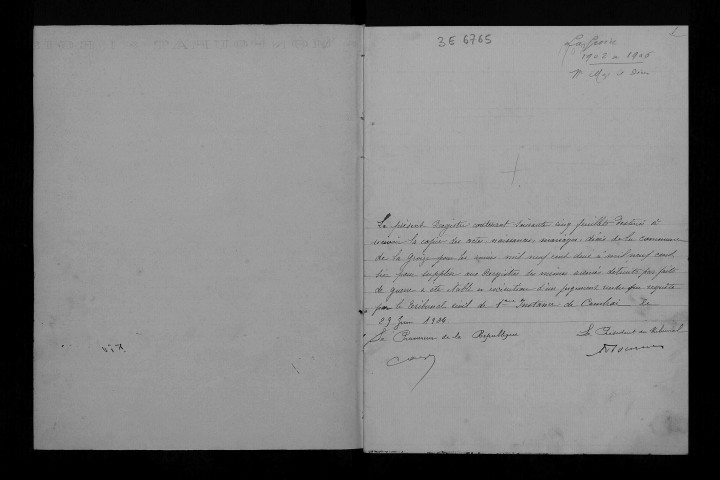 1
3E 6765
La Groise
1902 à 1906
N. Mar. et Décès
Le présent Registre contenant soixante cinq feuillets destiné à
recevoir la copie des actes naissances, mariages, décès de la commune
de la Groise pour les années mil neuf cent deux à mil neuf cent
six pour suppléer aux Registres des mêmes années détruits par faits
de guerre a été établi en exécution d'un jugement rendu sur requête
par le tribunal civil de 1ère Instance de Cambrai le
29 Juin 1924
Le Procureur de la République
Le Président du tribunal